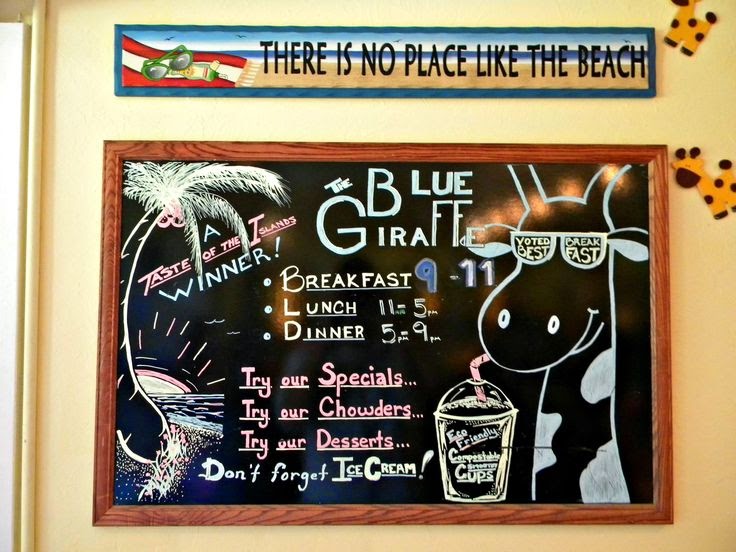 THERE IS NO PLACE LIKE THE BEACH
THE BLUE
GIRAFFE
A
TASTE OF THE ISLANDS
WINNER!
VOTED BEST BREAK FAST
• BREAKFAST 9-11
• LUNCH 11-5pm
• DINNER 5pm-9pm
Try our Specials...
Try our Chowders...
Try our Desserts...
Don't forget ICE CREAM!
Eco
Friendly
Compostable
SMOOTHIE
CUPS